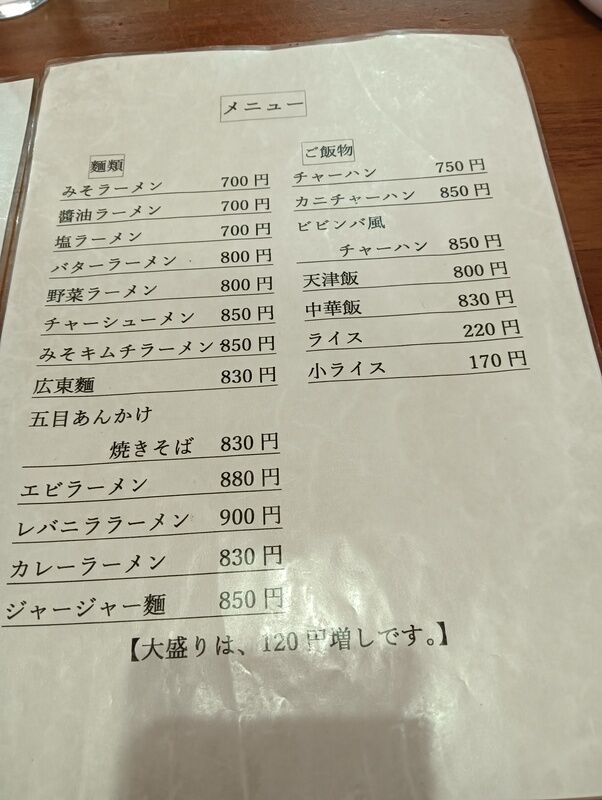 メニュー
麵類
みそラーメン 700円
醬油ラーメン 700円
塩ラーメン 700円
バターラーメン 800円
野菜ラーメン 800円
チャーシューメン 850円
みそキムチラーメン 850円
広東麵 830円
五目あんかけ
焼きそば 830円
エビラーメン 880円
レバニララーメン 900円
カレーラーメン 830円
ジャージャー麵 850円
ご飯物
チャーハン 750円
カニチャーハン 850円
ビビンバ風
チャーハン 850円
天津飯 800円
中華飯 830円
ライス 220円
小ライス 170円
【大盛りは、120円増しです。】